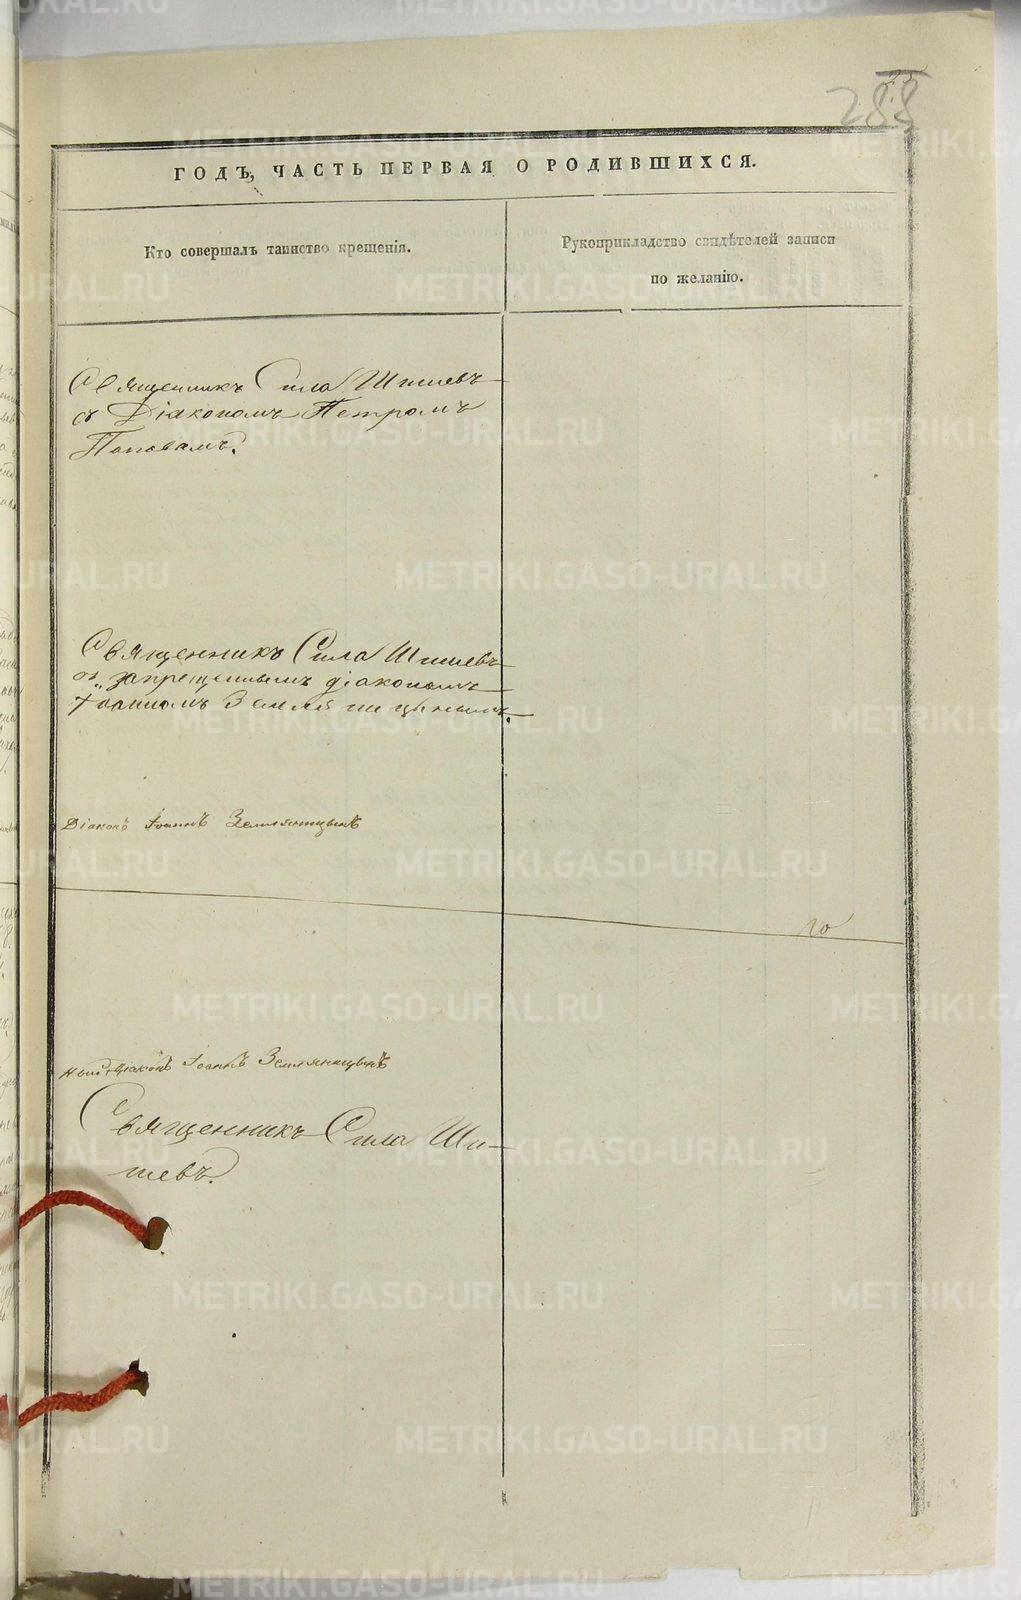 288
ГОДЪ, ЧАСТЬ ПЕРВАЯ О РОДИВШИХСЯ.
Кто совершалъ таинство крещенія.
Рукоприкладство свидѣтелей записи
по желанію.
Священникъ Сила Шишевъ
съ Діакономъ Петромъ
Поповымъ.
Священникъ Сила Шишевъ
съ запрещеннымъ діакономъ
Іоанномъ Земляницынымъ.
Діаконъ Іоаннъ Земляницынъ
Діаконъ Іоаннъ Земляницынъ
Священникъ Сила Ши-
шевъ.
METRIKI.GASO-URAL.RU